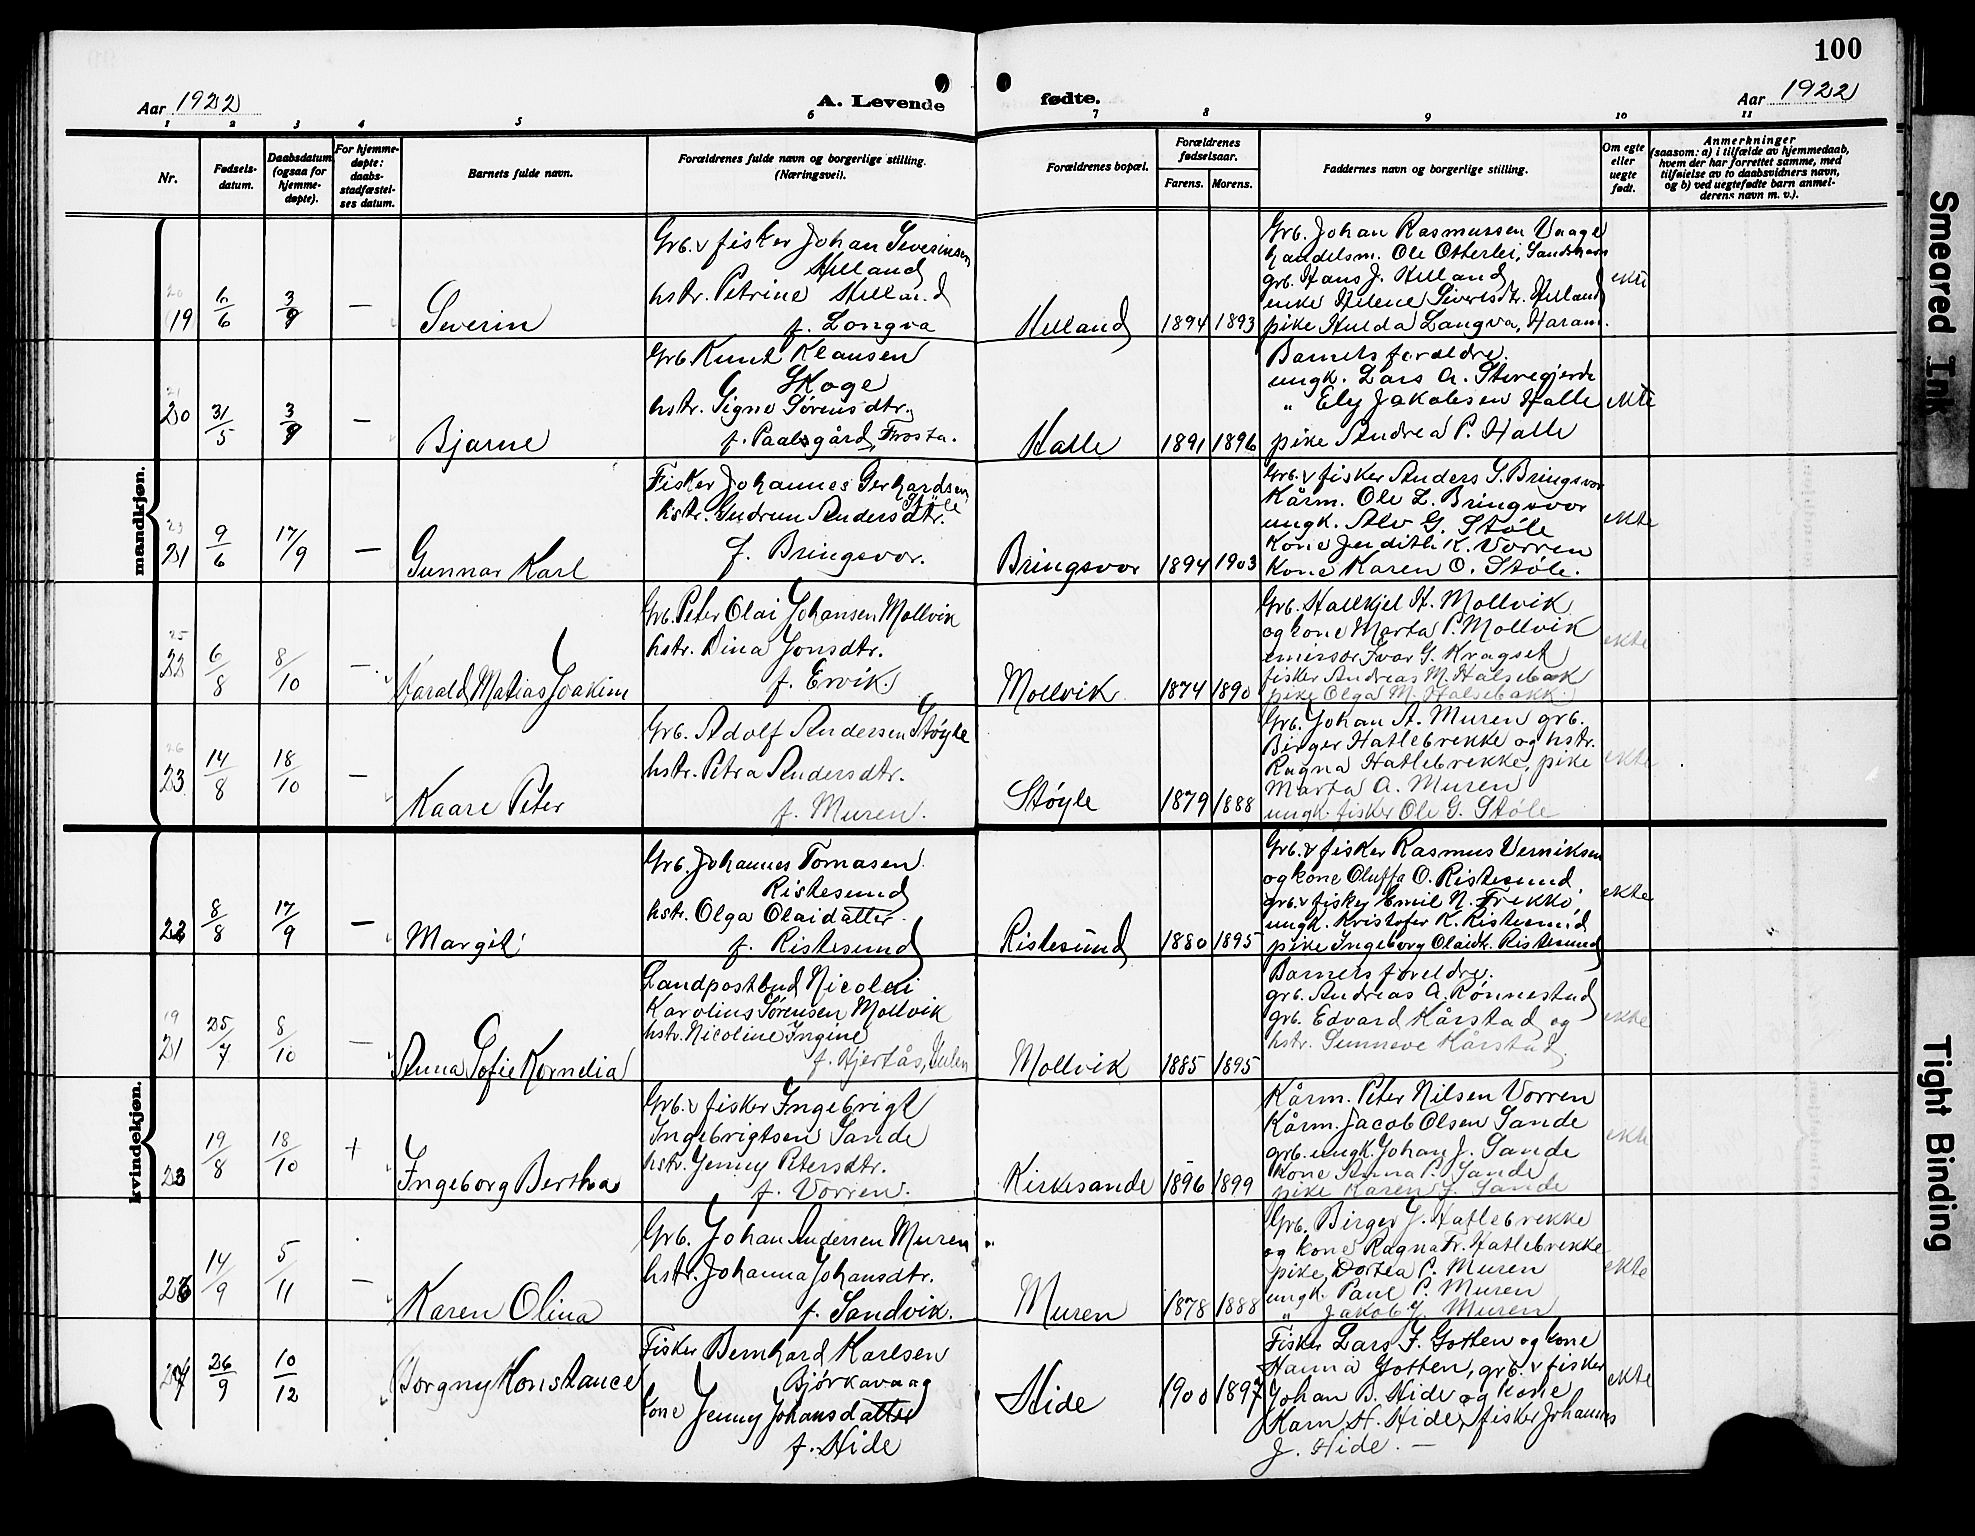 100
Aar 1922
A. Levende
fødte.
Aar 1922
1 2 3 4 5 6 7 8 9 10 11
Nr.
Fødsels-
datum.
Daabsdatum
(ogsaa for
hjemme-
døpte).
For hjemme-
døpte:
daabs-
stadfæstel-
ses datum.
Barnets fulde navn.
Forældrenes fulde navn og borgerlige stilling.
(Næringsvei).
Forældrenes bopæl.
Forældrenes
fødselsaar.
Farens. Morens.
Faddernes navn og borgerlige stilling.
Om egte
eller
uegte
født.
Anmerkninger
(saasom: a) i tilfælde av hjemmedaab,
hvem der har forrettet samme, med
tilføielse av to daabsvidners navn,
og b) ved uegtefødte barn anmel-
derens navn m. v.).
mandkjøn.
20
19
6/6
3/9
—
Severin
Grb. v fisker Johan Severinsen
Helland
hstr. Petrine Helland
f. Longva
Helland
1894 1893
Grb. Johan Rasmussen Vaage
handelsm. Ole Otterlei, Sandshavn
grb. Hans J. Helland
enke Helene Siversdtr. Helland
pike Hulda Langva, Haram.
ekte
21
20
31/5
3/9
—
Bjarne
Grb. Knut Klausen
Skoge
hstr. Signe Sørensdtr.
f. Paalsgård, Frosta.
Halle
1891 1896
Barnets foreldre.
ungk. Lars A. Steregjerde
" Ely Jakobsen Halle
pike Andrea P. Halle
ekte
23
21
9/6
17/9
—
Gunnar Karl
Fisker Johannes Gerhardsen
Støle
hstr. Gudrun Andersdtr.
f. Bringsvor.
Bringsvor
1894 1903
Grb. v fisker Anders S. Bringsvor
Kårm. Ole L. Bringsvor
ungk. Alv G. Støle
Kone Judith K. Vorren
Kone Karen O. Støle.
ekte
25
22
6/8
8/10
—
Harald Matias Joakim
Grb. Peter Olai Johansen Mollvik
hstr. Dina Jonsdtr.
f. Ervik
Mollvik
1874 1890
Grb. Hallkjel H. Mollvik
og kone Marta P. Mollvik
emissor Ivar G. Kragset
fisker Andreas M. Halsebakk
pike Olga M. Halsebakk
ekte
26
23
14/8
18/10
—
Kaare Peter
Grb. Adolf Andersen Støyle
hstr. Petra Andersdtr.
f. Muren.
Støyle
1879 1888
Grb. Johan A. Muren grb.
Birger Hatlebrekke og hstr.
Ragna Hatlebrekke, pike
Marta A. Muren
ungk. fisker Ole G. Støle
ekte
kvindekjøn.
22
8/8
17/9
—
Margit
Grb. Johannes Tomasen
Ristesund
hstr. Olga Olaidatter.
f. Ristesund
Ristesund
1880 1895
Grb. v fisker Rasmus Verniksen
og kone Oluffa O. Ristesund.
grb. v fisker Emil N. Frekkø
ungk. Kristofer K. Ristesund
pike Ingeborg Olaidtr. Ristesund
ekte
19
21
25/7
8/10
—
Anna Sofie Kornelia
Landpostbud Nicolai
Karolius Sørensen Mollvik
hstr. Nicoline Ingine
f. Hjertås, Gulen
Mollvik
1885 1895
Barnets foreldre.
grb. Andreas A. Rønnestad
grb. Edvard Kårstad og
hstr. Sunneve Kårstad
ekte
23
19/8
18/10
+
Ingeborg Bertha
Grb. v fisker Ingebrigt
Ingebrigtsen Sande
hstr. Jenny Petersdtr.
f. Vorren.
Kirkesande
1896 1899
Kårm. Peter Nilsen Vorren
Kårm. Jacob Olsen Sande
grb. ungk. Johan J. Sande
Kone Anna P. Sande
pike Karen J. Sande
ekte
14/9
5/11
—
Karen Olina
Grb. Johan Andersen Muren
hstr. Johanna Johansdtr.
f. Sandvik.
Muren
1878 1888
Grb. Birger J. Hatlebrekke
og kone Ragna Fr. Hatlebrekke
pike Dortea P. Muren
ungk. Paul P. Muren
" Jakob J. Muren
ekte
26/9
10/12
Borgny Konstance
Fisker Bernhard Karlsen
Bjørkavaag
kone Jenny Johansdatter
f. Hide
Hide
1900 1897
Fisker Lars J. Gotten og kone
Hanna Gotten, grb. v fisker
Johan B. Hide og kone
Karn H. Hide, fisker Johannes
J. Hide. —
ekte
Smeared Ink
Tight Binding